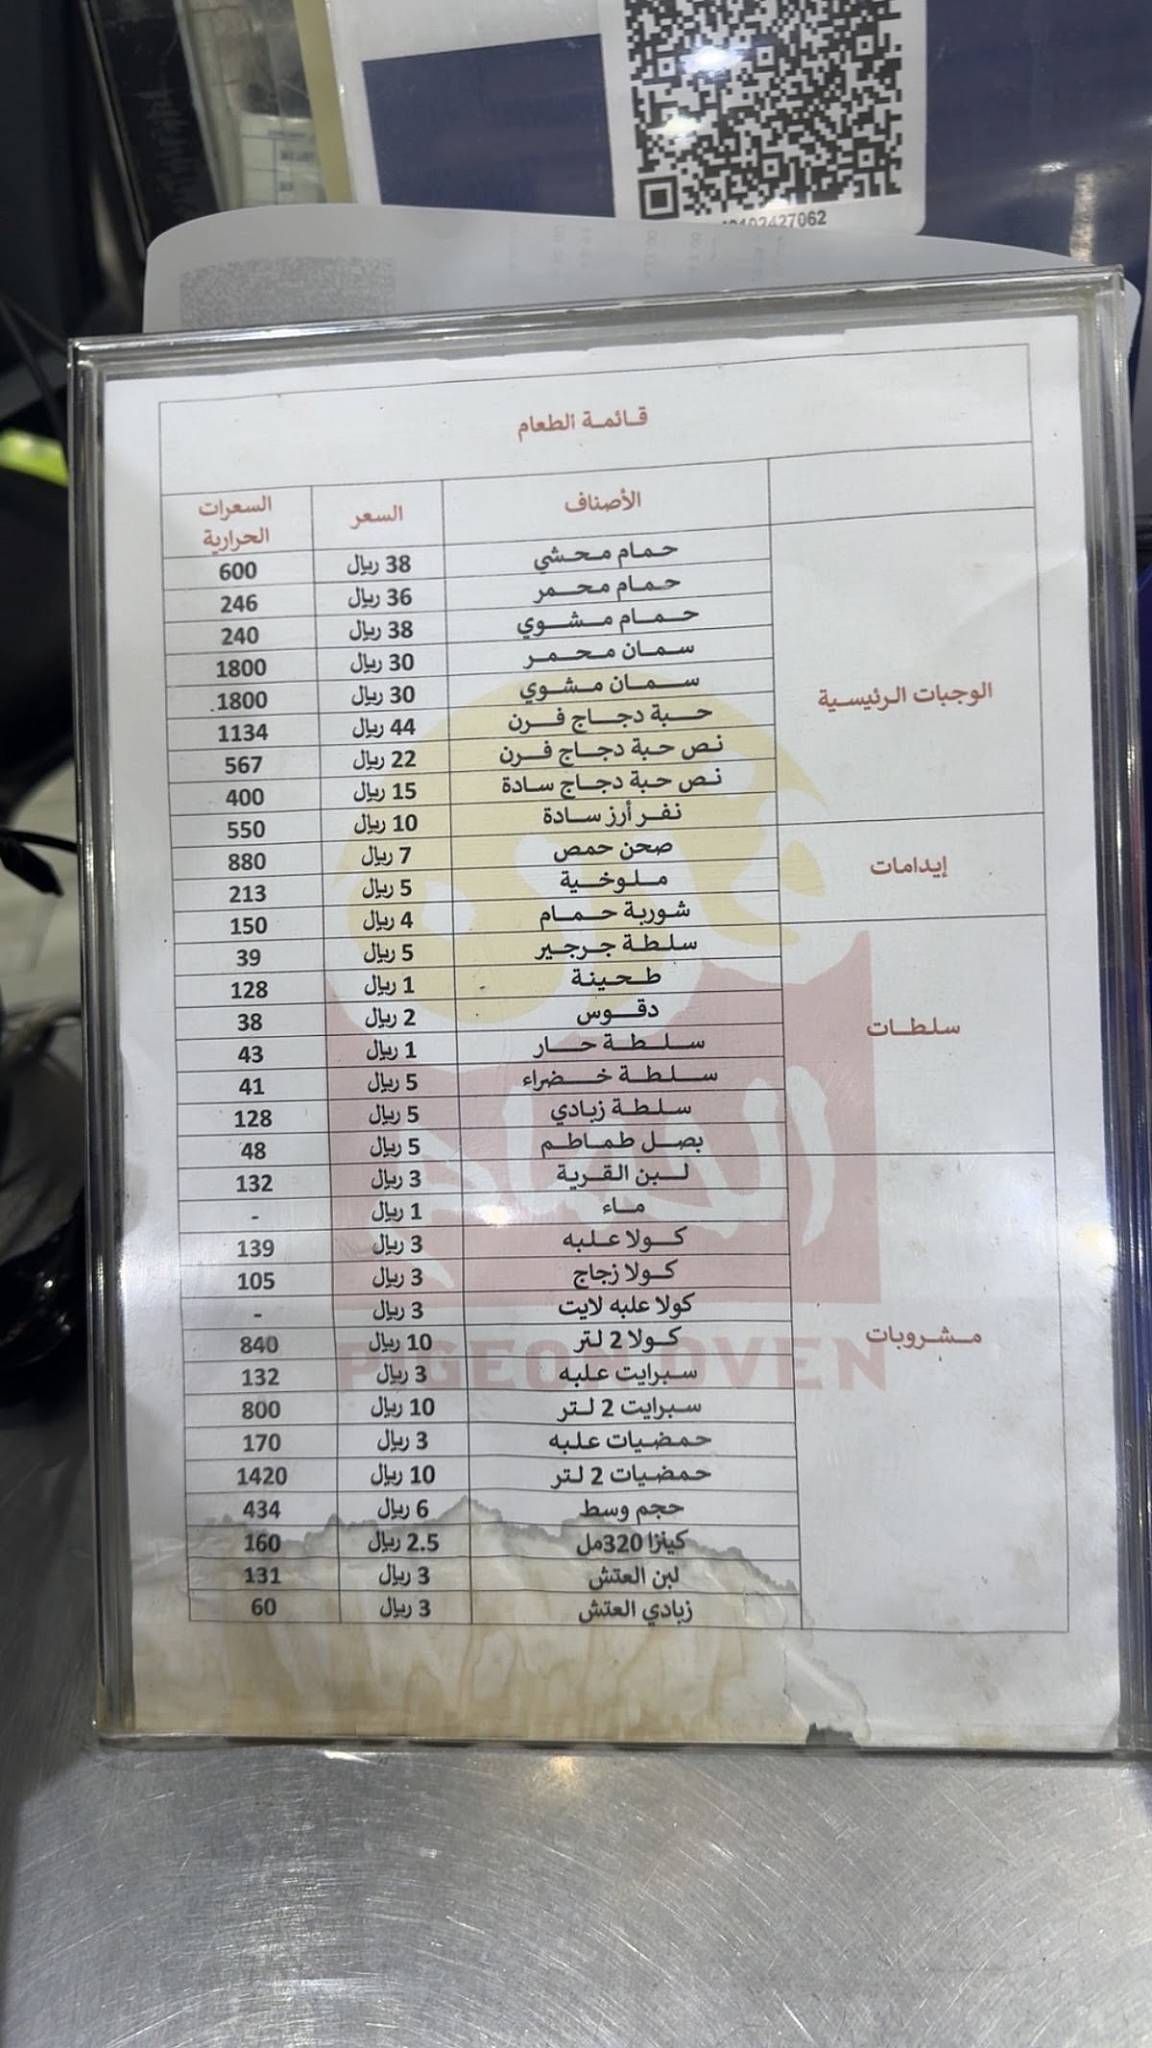 42427062
قائمة الطعام
الأصناف السعر السعرات الحرارية
الوجبات الرئيسية
حمام محشي 38 ريال 600
حمام محمر 36 ريال 246
حمام مشوي 38 ريال 240
سمان محمر 30 ريال 1800
سمان مشوي 30 ريال 1800
حبة دجاج فرن 44 ريال 1134
نص حبة دجاج فرن 22 ريال 567
نص حبة دجاج سادة 15 ريال 400
نفر أرز سادة 10 ريال 550
إيدامات
صحن حمص 7 ريال 880
ملوخية 5 ريال 213
شوربة حمام 4 ريال 150
سلطات
سلطة جرجير 5 ريال 39
طحينة 1 ريال 128
دقوس 2 ريال 38
سلطة حار 1 ريال 43
سلطة خضراء 5 ريال 41
سلطة زبادي 5 ريال 128
بصل طماطم 5 ريال 48
مشروبات
لبن القرية 3 ريال 132
ماء 1 ريال -
كولا علبه 3 ريال 139
كولا زجاج 3 ريال 105
كولا علبه لايت 3 ريال -
كولا 2 لتر 10 ريال 840
سبرايت علبه 3 ريال 132
سبرايت 2 لتر 10 ريال 800
حمضيات علبه 3 ريال 170
حمضيات 2 لتر 10 ريال 1420
حجم وسط 6 ريال 434
كينزا 320مل 2.5 ريال 160
لبن العتش 3 ريال 131
زبادي العتش 3 ريال 60
PIGEON OVEN